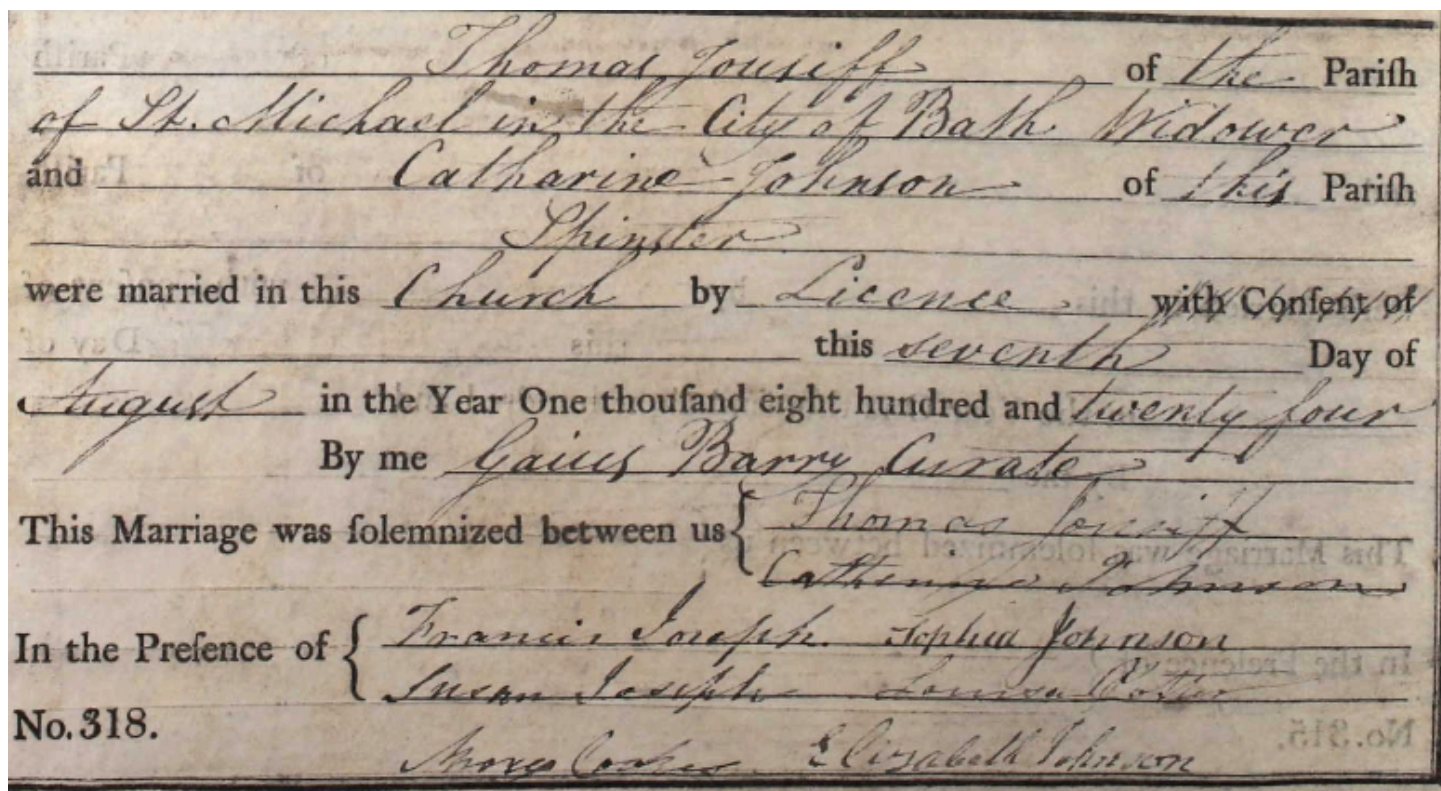 Thomas Jousiff of the Pariſh
of St. Michael in the City of Bath Widower
and Catharine Johnson of this Pariſh
Spinster
were married in this Church by Licence with Conſent of
this seventh Day of
August in the Year One thouſand eight hundred and twenty four
By me Gaius Barry Curate
This Marriage was ſolemnized between us Thomas Jousiff
Catherine Johnson
In the Preſence of Francis Joseph. Sophia Johnson
Susan Joseph Louisa
No. 318.
Elizabeth Johnson